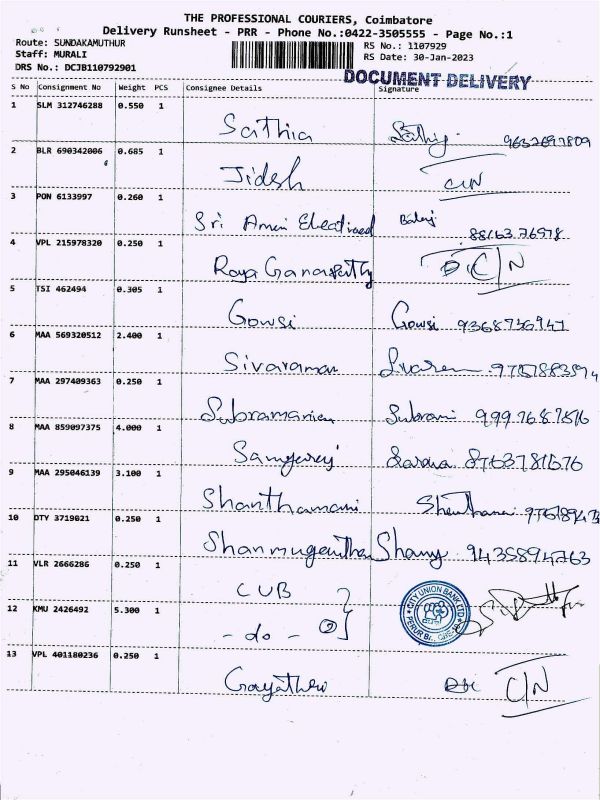 THE PROFESSIONAL COURIERS, Coimbatore
Delivery Runsheet - PRR - Phone No.:0422-3505555 - Page No.:1
Route: SUNDAKAMUTHUR
RS No.: 1107929
Staff: MURALI
RS Date: 30-Jan-2023
DRS No.: DCJB110792901
DOCUMENT DELIVERY
S No Consignment No Weight PCS Consignee Details Signature
1 SLM 312746288 0.550 1
Sathia
2 BLR 690342006 0.685 1
Jidesh C/N
3 PON 6133997 0.260 1
Sri Amin Balaji
4 VPL 215978320 0.250 1
Raya Ganapathy C/N
5 TSI 462494 0.305 1
Gowsi Gowsi 9368736941
6 MAA 569320512 2.400 1
Sivaraman
7 MAA 297409363 0.250 1
Subramanian Subrani
8 MAA 859097375 4.000 1
8763781676
9 MAA 295046139 3.100 1
Shanthamani
10 DTY 3719021 0.250 1
Shanmuganthan Shanmu 9435894763
11 VLR 2666286 0.250 1
CUB
CITY UNION BANK LTD
12 KMU 2426492 5.300 1
- do - 2
13 VPL 401180236 0.250 1
Gayathri C/N